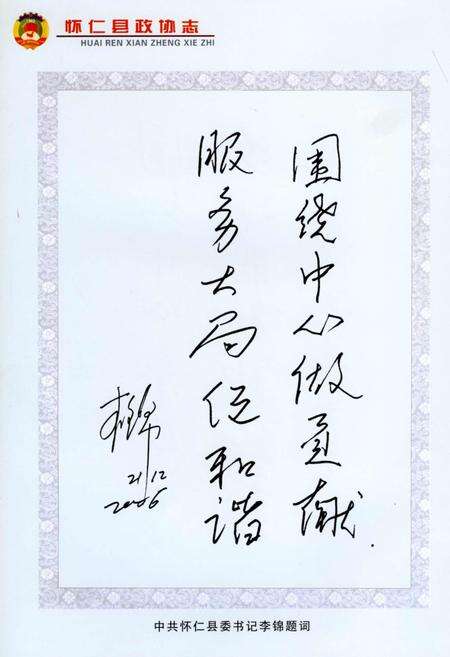 怀仁县政协志
HUAI REN XIAN ZHENG XIE ZHI
围绕中心做贡献
服务大局促和谐
李锦
21/12
2006
中共怀仁县委书记李锦题词